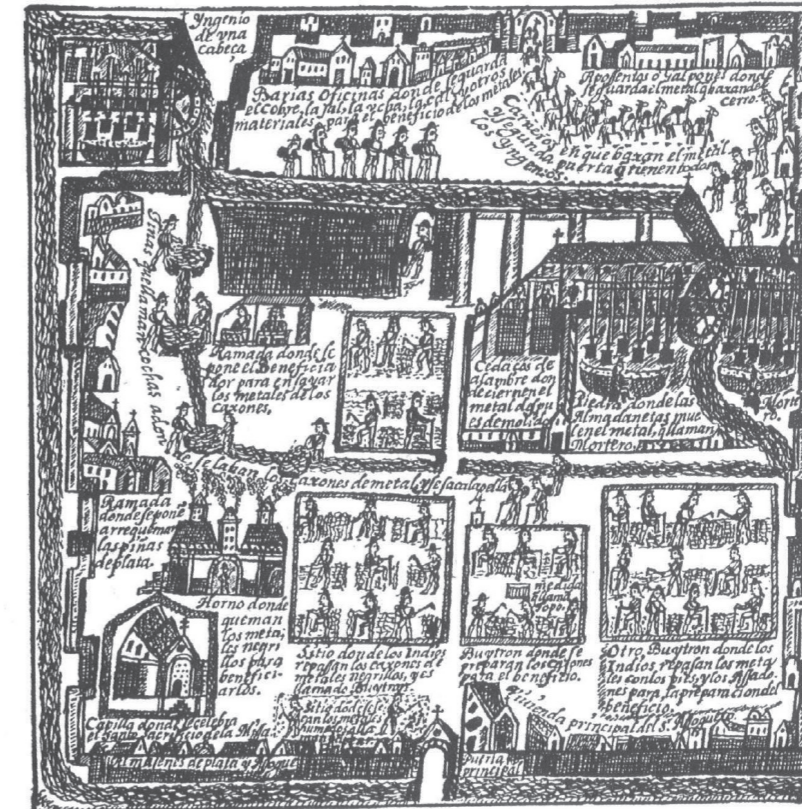 Yngenio
de vna
Cabeça
Barias Oficinas donde se guarda
el Cobre, la sal, la
materiales, para el beneficio de los metales
y otros
Aposentos o Galpones donde
se guarda el metal q baxan del
cerro.
Carneros en que baxan el metal
y segunda puerta q tienen todos
los Yngenios.
Tinas que llaman cochas adon
de se laban los caxones de metal y se saca la
Ramada donde se
pone el Beneficia
dor para ensayar
los metales de los
caxones,
Cedaços de
alambre don
de ciernen el
metal despu
es de molido
Piedra donde las
Almadanetas mue
len el metal, q llaman
Mortero,
Morte
ro.
Ramada
donde se pone
a rrequemar
las piñas
de plata.
Horno donde
queman
los meta,
les negri
llos para
benefici-
arlos.
Sitio donde los Indios
repasan los caxones de
metales negrillos, y es
llamado Buytron
medida
llama
Topo,
Buytron donde se
preparan los caxones
para el beneficio.
Otro Buytron donde los
Indios, repasan los meta,
les con los pies, y los Assado
nes para, la preparacion del
beneficio.
Capilla donde se celebra
el Santo sacrificio de la Missa.
Sitio donde se
Vivienda principal del s. Azoguero
Almacenes de plata y Azogue
Puerta
principal